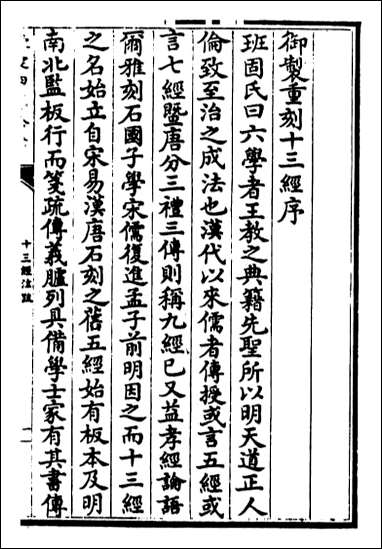 御製重刻十三經序
班固氏曰六學者王教之典籍先聖所以明天道正人
倫致至治之成法也漢代以來儒者傳授或言五經或
言七經暨唐分三禮三傳則稱九經已又益孝經論語
爾雅刻石國子學宋儒復進孟子前明因之而十三經
之名始立自宋易漢唐石刻之舊五經始有板本及明
南北監板行而箋疏傳義臚列具備學士家有其書傳
十三經注疏
一